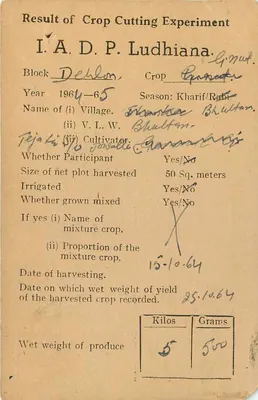 Result of Crop Cutting Experiment
I. A. D. P. Ludhiana.
Block Dehlon. Crop G.nut.
Year 1964-65 Season: Kharif/Rabi
Name of (i) Village. Bhultan.
(ii) V. L. W. Bhultan.
(iii) Cultivator.
Whether Participant Yes/No
Size of net plot harvested 50 Sq. meters
Irrigated Yes/No
Whether grown mixed Yes/No
If yes (i) Name of
mixture crop,
(ii) Proportion of the
mixture crop.
Date of harvesting. 15-10-64
Date on which wet weight of yield
of the harvested crop recorded. 25.10.64
Kilos Grams
Wet weight of produce 5 500